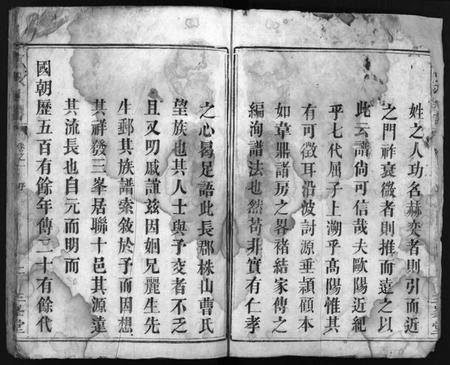 姓之人功名赫奕者則引而近
之門祚衰微者則推而遠之以
此云譜尚可信哉夫歐陽近紀
乎七代屈子上溯乎高陽惟其
有可徵耳沿波討源垂顙顧本
如韋鼎諸房之畧褚結家傳之
編洵譜法也然苟非實有仁孝
之心曷足語此長郡株山曹氏
望族也其人士與予交者不乏
且又叨戚誼茲因姻兄麗生先
生郵其族譜索敘於予而因想
其祥發三峯居聯十邑其源遠
其流長也自元而明而
國朝歷五百有餘年傳二十有餘代
卷之一